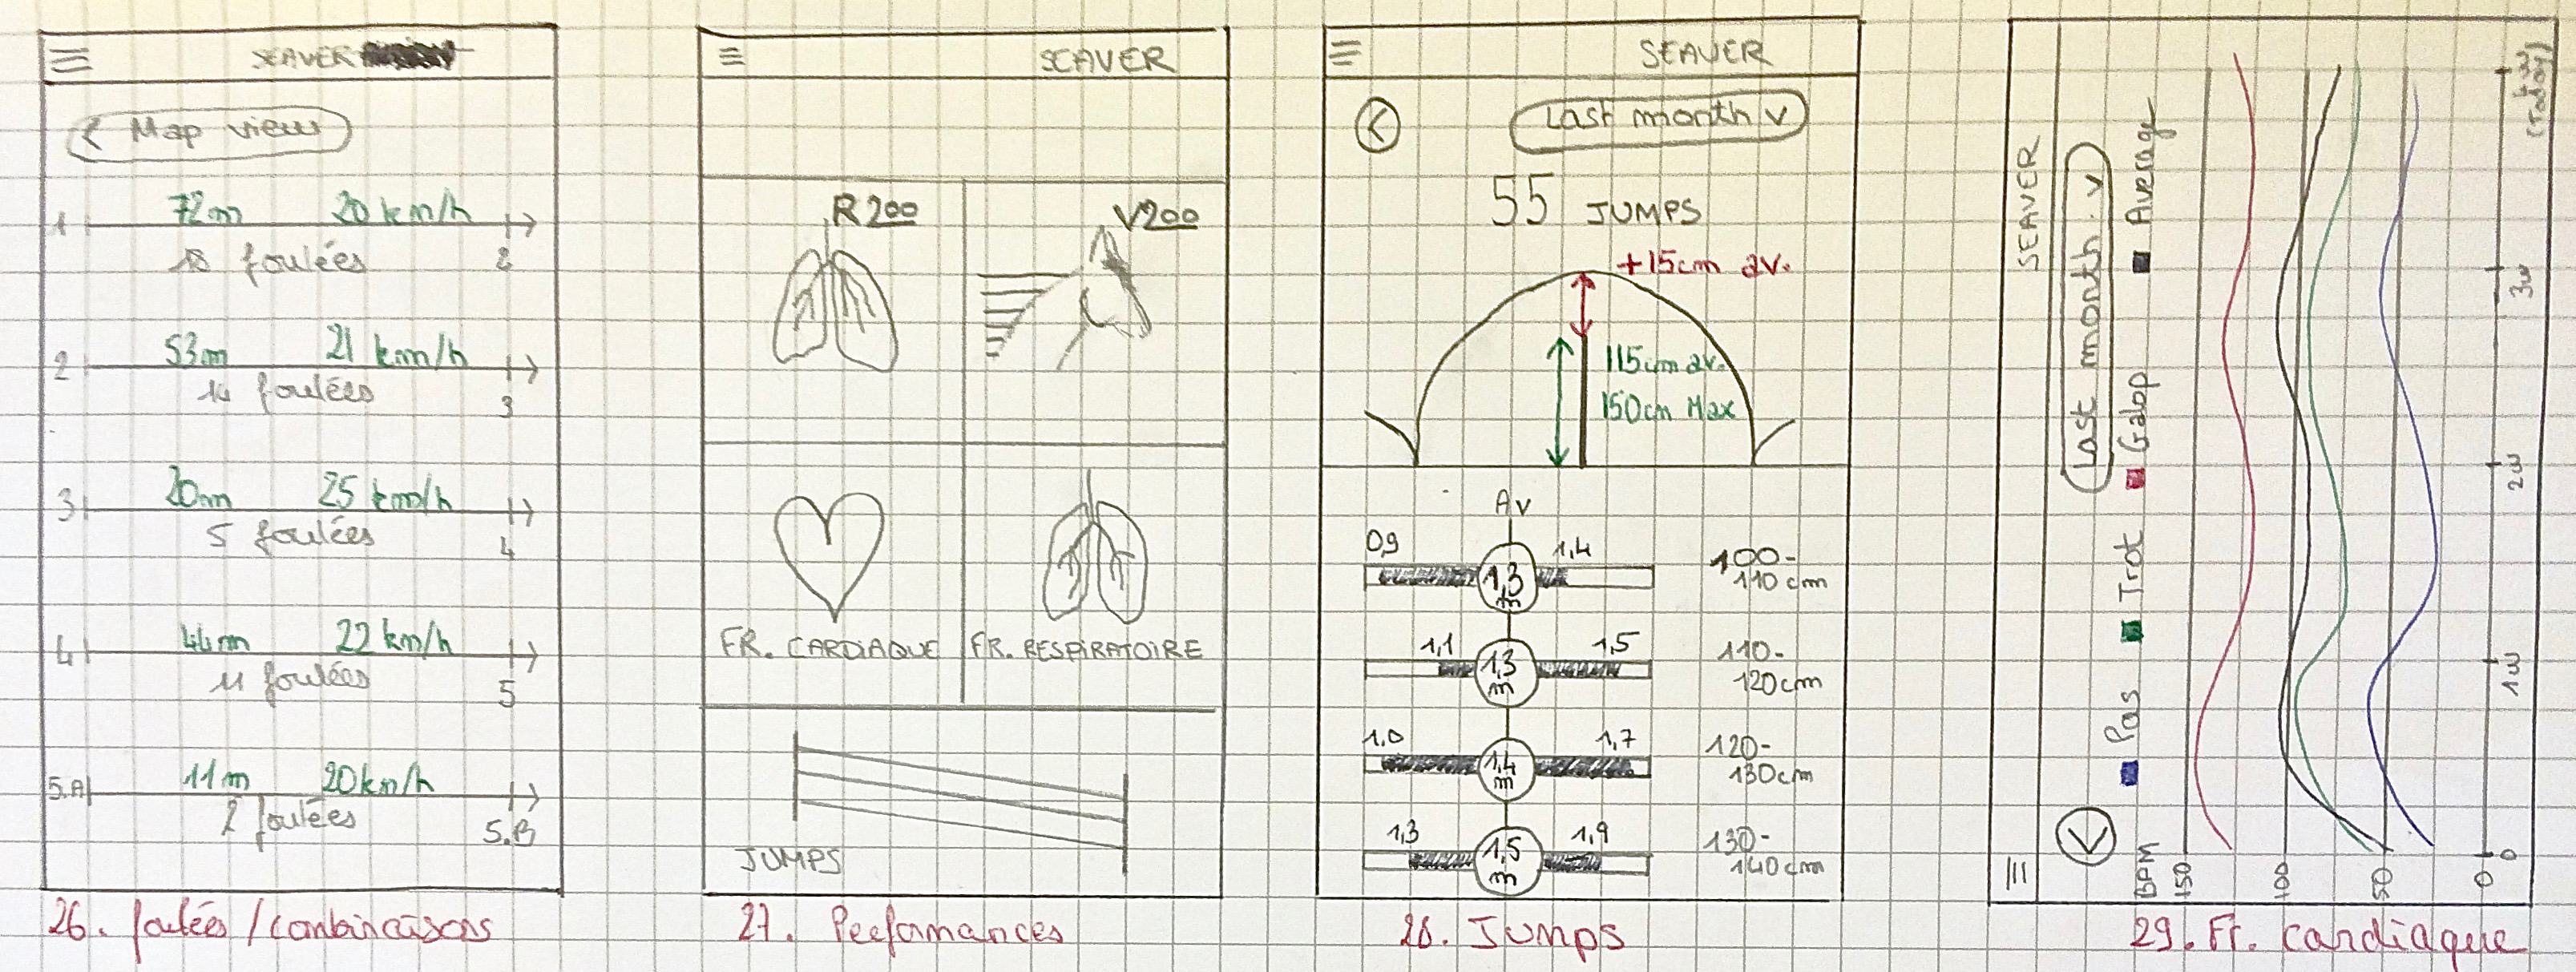 SEAVER
< Map view
72m 20 km/h
1
18 foulées 2
53m 21 km/h
2
14 foulées 3
20m 25 km/h
3
5 foulées 4
44m 22 km/h
4
11 foulées 5
11m 20km/h
5.A
2 foulées 5.B
26. foulées / combinaisons
SEAVER
R200 V200
FR. CARDIAQUE FR. RESPIRATOIRE
JUMPS
27. Performances
SEAVER
< Last month v
55 JUMPS
+15cm av.
115cm av.
150cm Max
Av
0,9 1,3 m 1,4 100-
110 cm
1,1 1,3 m 1,5 110-
120cm
1,0 1,4 m 1,7 120-
130cm
1,3 1,5 m 1,9 130-
140cm
28. Jumps
SEAVER
< Last month v
Pas Trot Galop Average
BPM
150
100
50
0
0 1w 2w 3w
(Today)
29. Fr. cardiaque